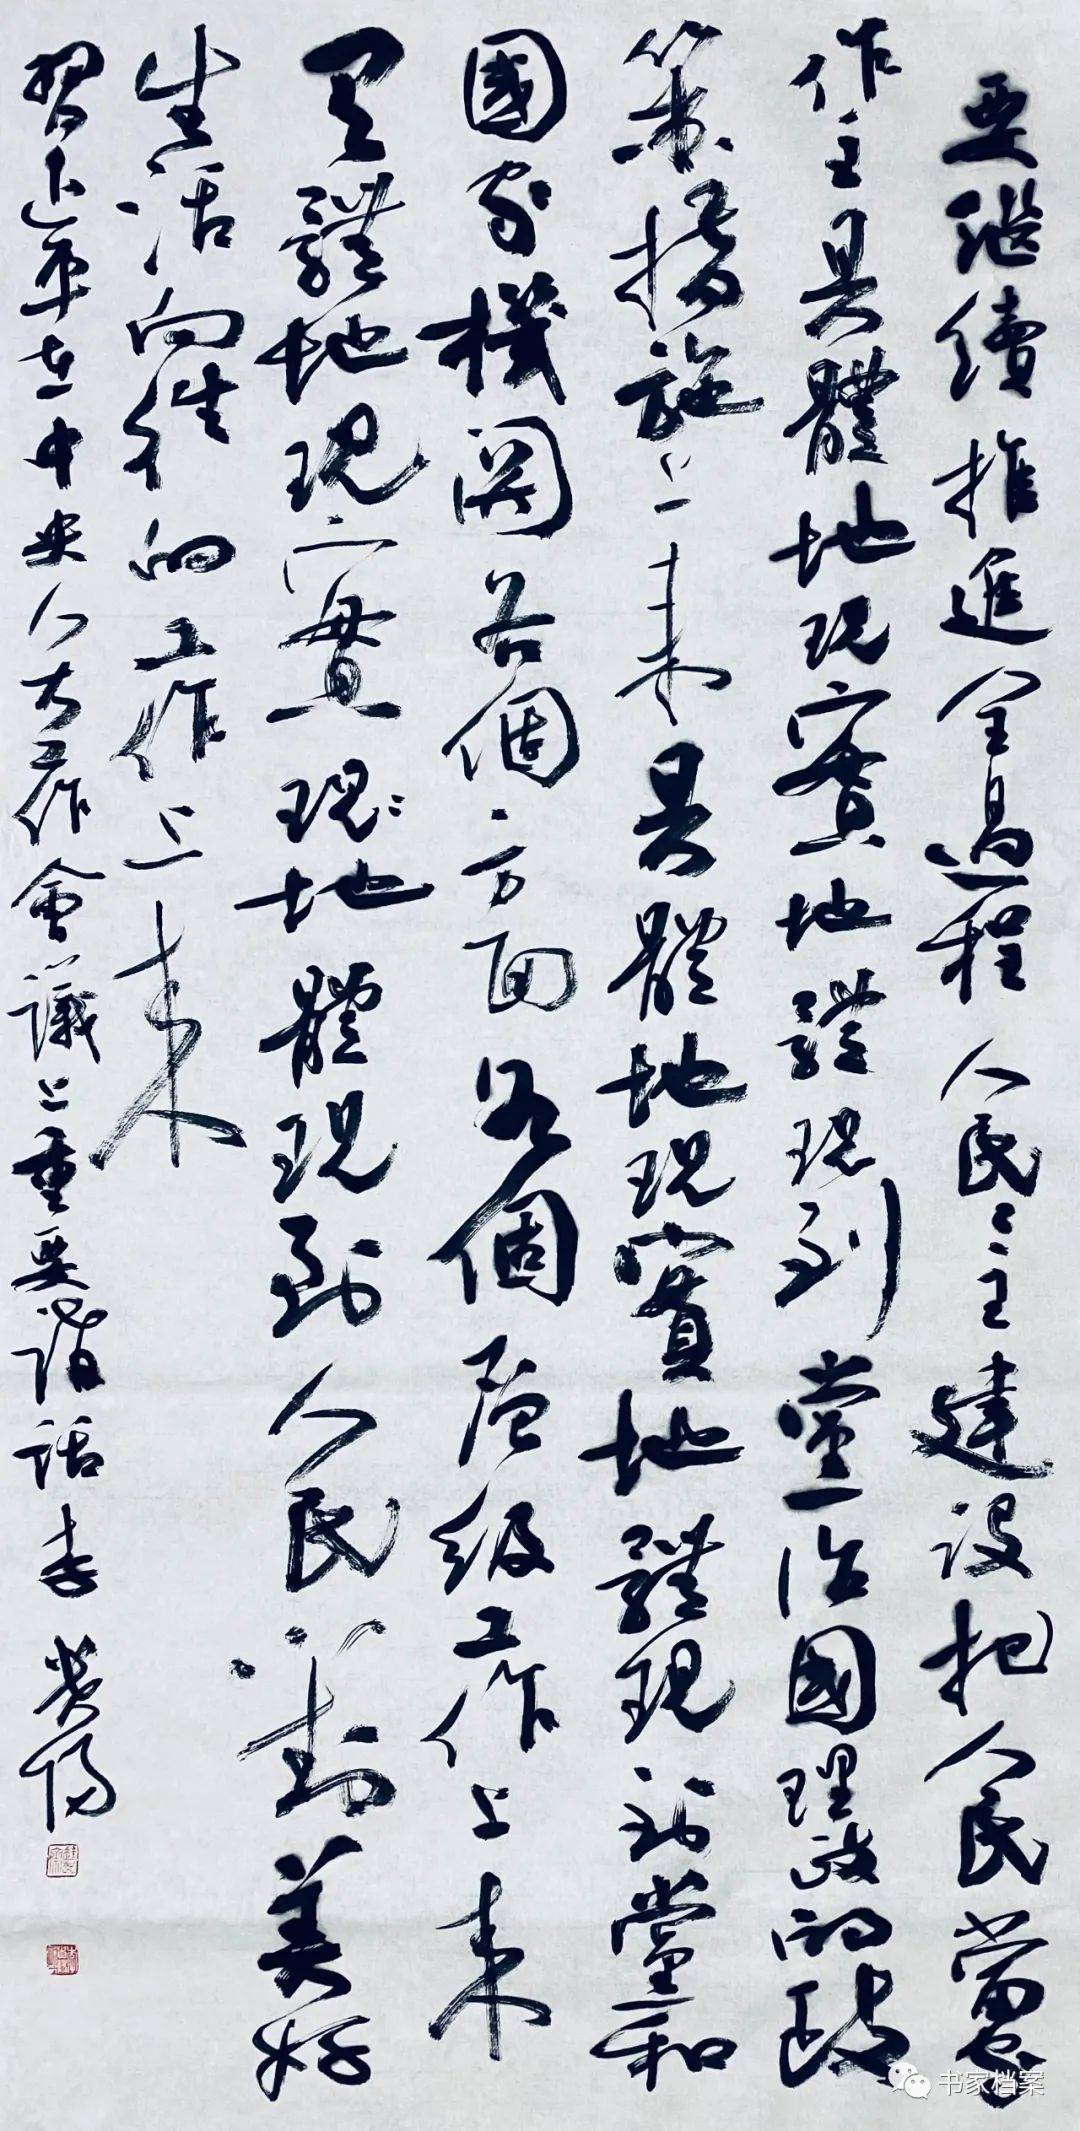 要继續推進全過程人民々主建設把人民當家
作主具體地現實地體現到黨治國理政的政
策措施上来具體地現實地體現到黨和
國家機関各個方面各個层級工作上来
具體地現實現地體現到人民對美好
生活向往的工作上来
習近平在中央人大工作會議上重要講話李
书家档案